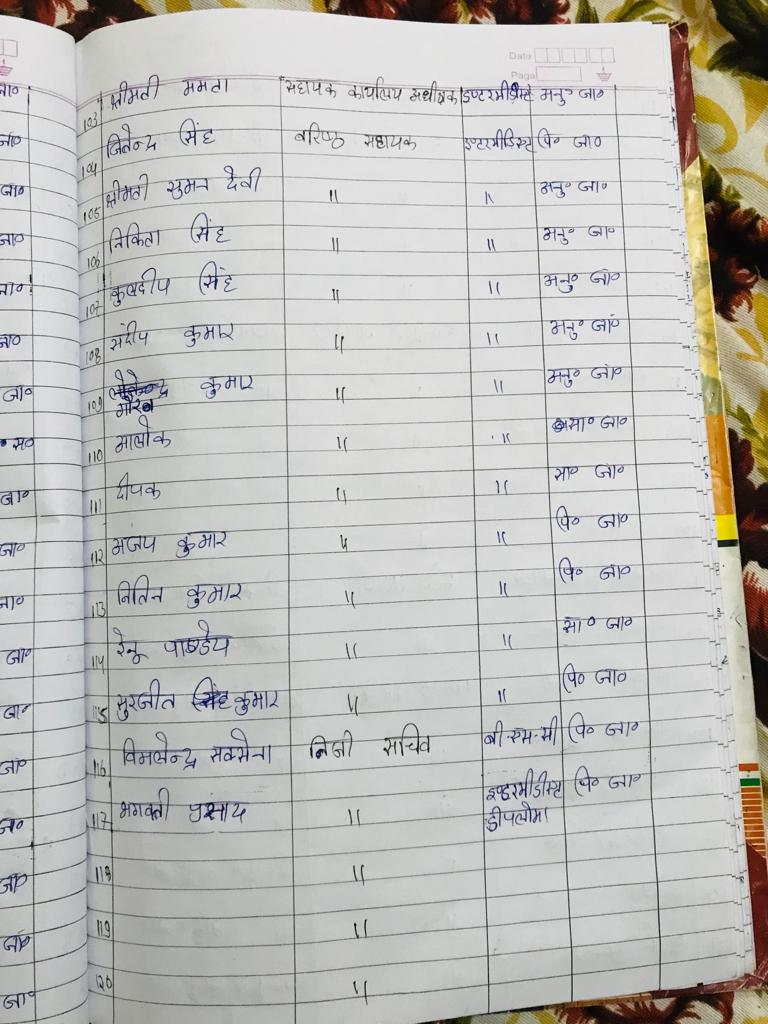 Date
Page
103 श्रीमती ममता सहायक कार्यालय अधीक्षक इण्टरमीडिस्ट अनु० जा०
104 जितेन्द्र सिंह वरिष्ठ सहायक इण्टरमीडिस्ट पि० जा०
105 श्रीमती सुमन देवी " " अनु० जा०
106 निकिता सिंह " " अनु० जा०
107 कुलदीप सिंह " " अनु० जा०
108 संदीप कुमार " " अनु० जा०
109 कुमार " " अनु० जा०
गौरव
110 आलोक " " सा० जा०
111 दीपक " " सा० जा०
112 अजय कुमार " " पि० जा०
113 नितिन कुमार " " पि० जा०
114 रेनू पाण्डेय " " सा० जा०
115 सुरजीत कुमार " " पि० जा०
116 विमलेन्द्र सक्सेना निजी सचिव बी-एस-सी पि० जा०
117 भगवती प्रसाद " इण्टरमीडिस्ट पि० जा०
डीपलोमा
118 "
119 "
120 "